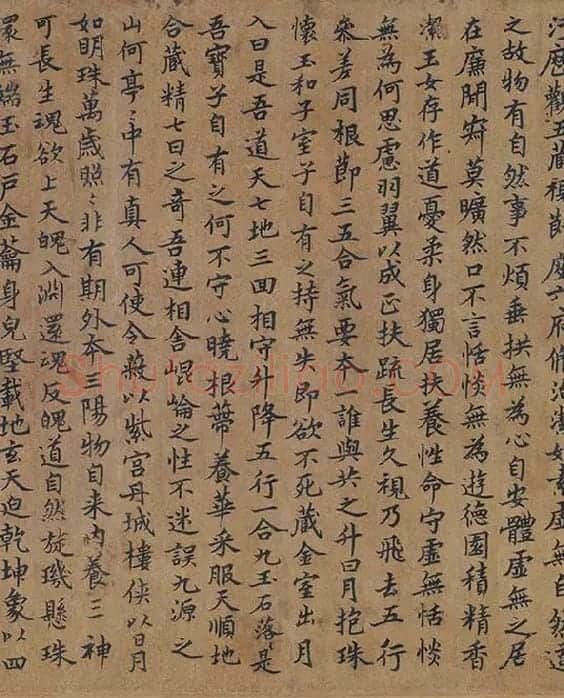 江歷觀五藏視節度六府脩治潔如素虛無自然道
之故物有自然事不煩垂拱無為心自安體虛無之居
在廉閒寂莫曠然口不言恬惔無為遊德園積精香
潔玉女存作道憂柔身獨居扶養性命守虛無恬惔
無為何思慮羽翼以成正扶疏長生久視乃飛去五行
參差同根節三五合氣要夲一誰與共之升日月抱珠
懷玉和子室子自有之持無失即欲不死藏金室出月
入日是吾道天七地三回相守升降五行一合九玉石落〻是
吾寶子自有之何不守心曉根蒂養華采服天順地
合藏精七日之奇吾連相舍崐崘之性不迷誤九源之
山何亭〻中有真人可使令蔽以紫宮丹城樓俠以日月
如明珠萬歲照〻非有期外夲三陽物自来內養三神
可長生魂欲上天魄入淵還魂反魄道自然旋璣懸珠
環無端玉石戶金籥身皃堅載地玄天迫乾坤象以四